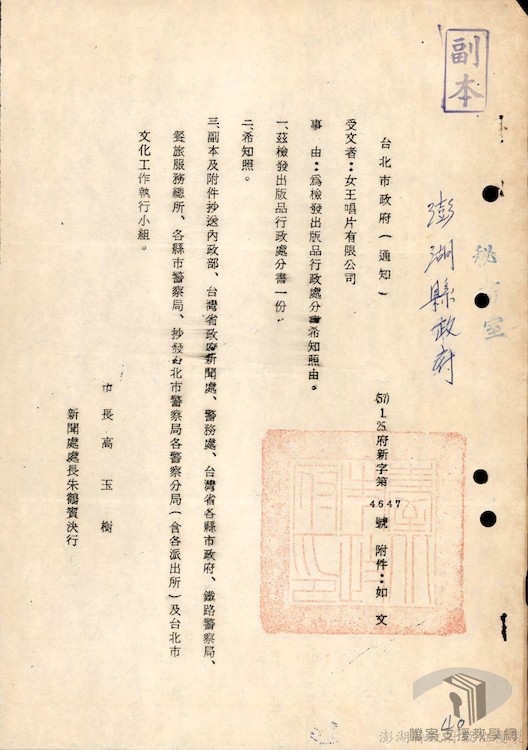 副本
澎湖縣政府
秘書室
台北市政府(通知)
(57)1.25.府新字第4647號 附件:如文
受文者:女王唱片有限公司
事 由:為檢發出版品行政處分書希知照由。
一、茲檢發出版品行政處分書一份。
二、希知照。
三、副本及附件抄送內政部、台灣省政府新聞處、警務處、台灣省各縣市政府、鐵路警察局、
餐旅服務總所、各縣市警察局、抄發台北市警察局各警察分局(含各派出所)及台北市
文化工作執行小組。
市長 高玉樹
新聞處處長朱鶴賓決行
40
檔案支援教學網